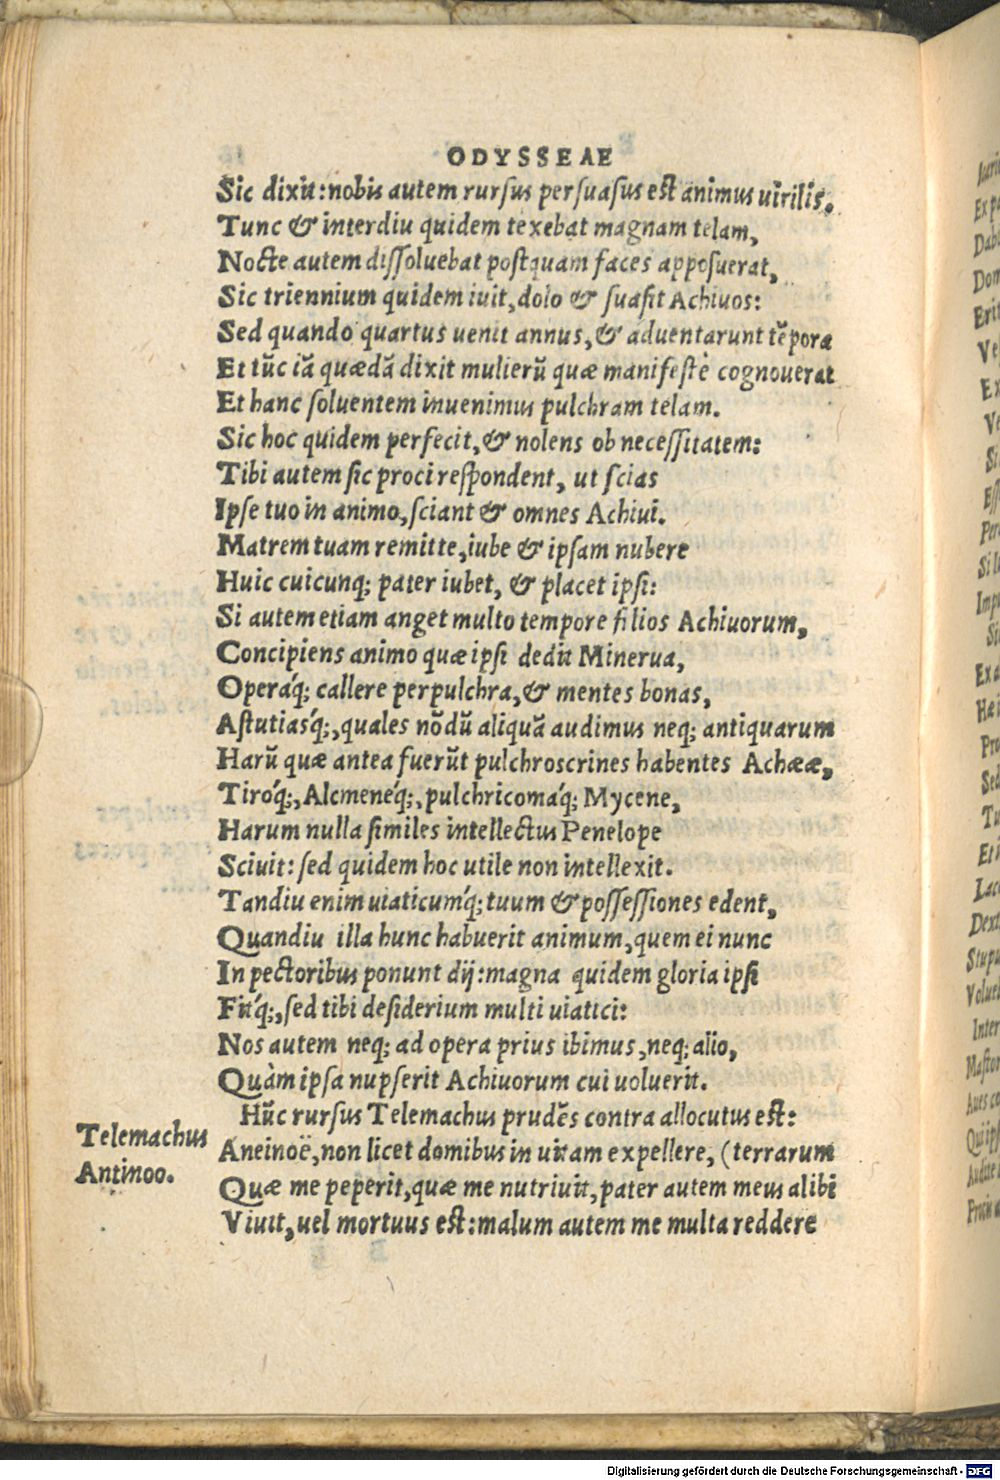 ODYSSEAE
Sic dixit:nobis autem rursus persuasus est animus uirilis.
Tunc & interdiu quidem texebat magnam telam,
Nocte autem dissoluebat postquam faces apposuerat,
Sic triennium quidem iuit, dolo & suasit Achiuos:
Sed quando quartus uenit annus, & aduentarunt tẽpora
Et tũc iã quædã dixit mulierũ quæ manifestè cognouerat
Et hanc soluentem inuenimus pulchram telam.
Sic hoc quidem perfecit, & nolens ob necessitatem:
Tibi autem sic proci respondent, ut scias
Ipse tuo in animo, sciant & omnes Achiui.
Matrem tuam remitte, iube & ipsam nubere
Huic cuicunq; pater iubet, & placet ipsi:
Si autem etiam anget multo tempore filios Achiuorum,
Concipiens animo quæ ipsi dedit Minerua,
Operáq; callere perpulchra, & mentes bonas,
Astutiasq́;, quales nõdũ aliquã audimus neq; antiquarum
Harũ quæ antea fuerũt pulchroscrines habentes Achææ,
Tiróq́;, Alcmeneq́;, pulchricomáq; Mycene,
Harum nulla similes intellectus Penelope
Sciuit: sed quidem hoc utile non intellexit.
Tandiu enim uiaticumq́; tuum & possessiones edent,
Quandiu illa hunc habuerit animum, quem ei nunc
In pectoribus ponunt dij: magna quidem gloria ipsi
Fitq́;, sed tibi desiderium multi uiatici:
Nos autem neq; ad opera prius ibimus, neq; alio,
Quàm ipsa nupserit Achiuorum cui uoluerit.
Hũc rursus Telemachus prudẽs contra allocutus est:
Telemachus
Antinoo.
Aneinoë, non licet domibus inuitam expellere, (terrarum
Quæ me peperit, quæ me nutriuit, pater autem meus alibi
Viuit, uel mortuus est: malum autem me multa reddere
Digitalisierung gefördert durch die Deutsche Forschungsgemeinschaft - DFG